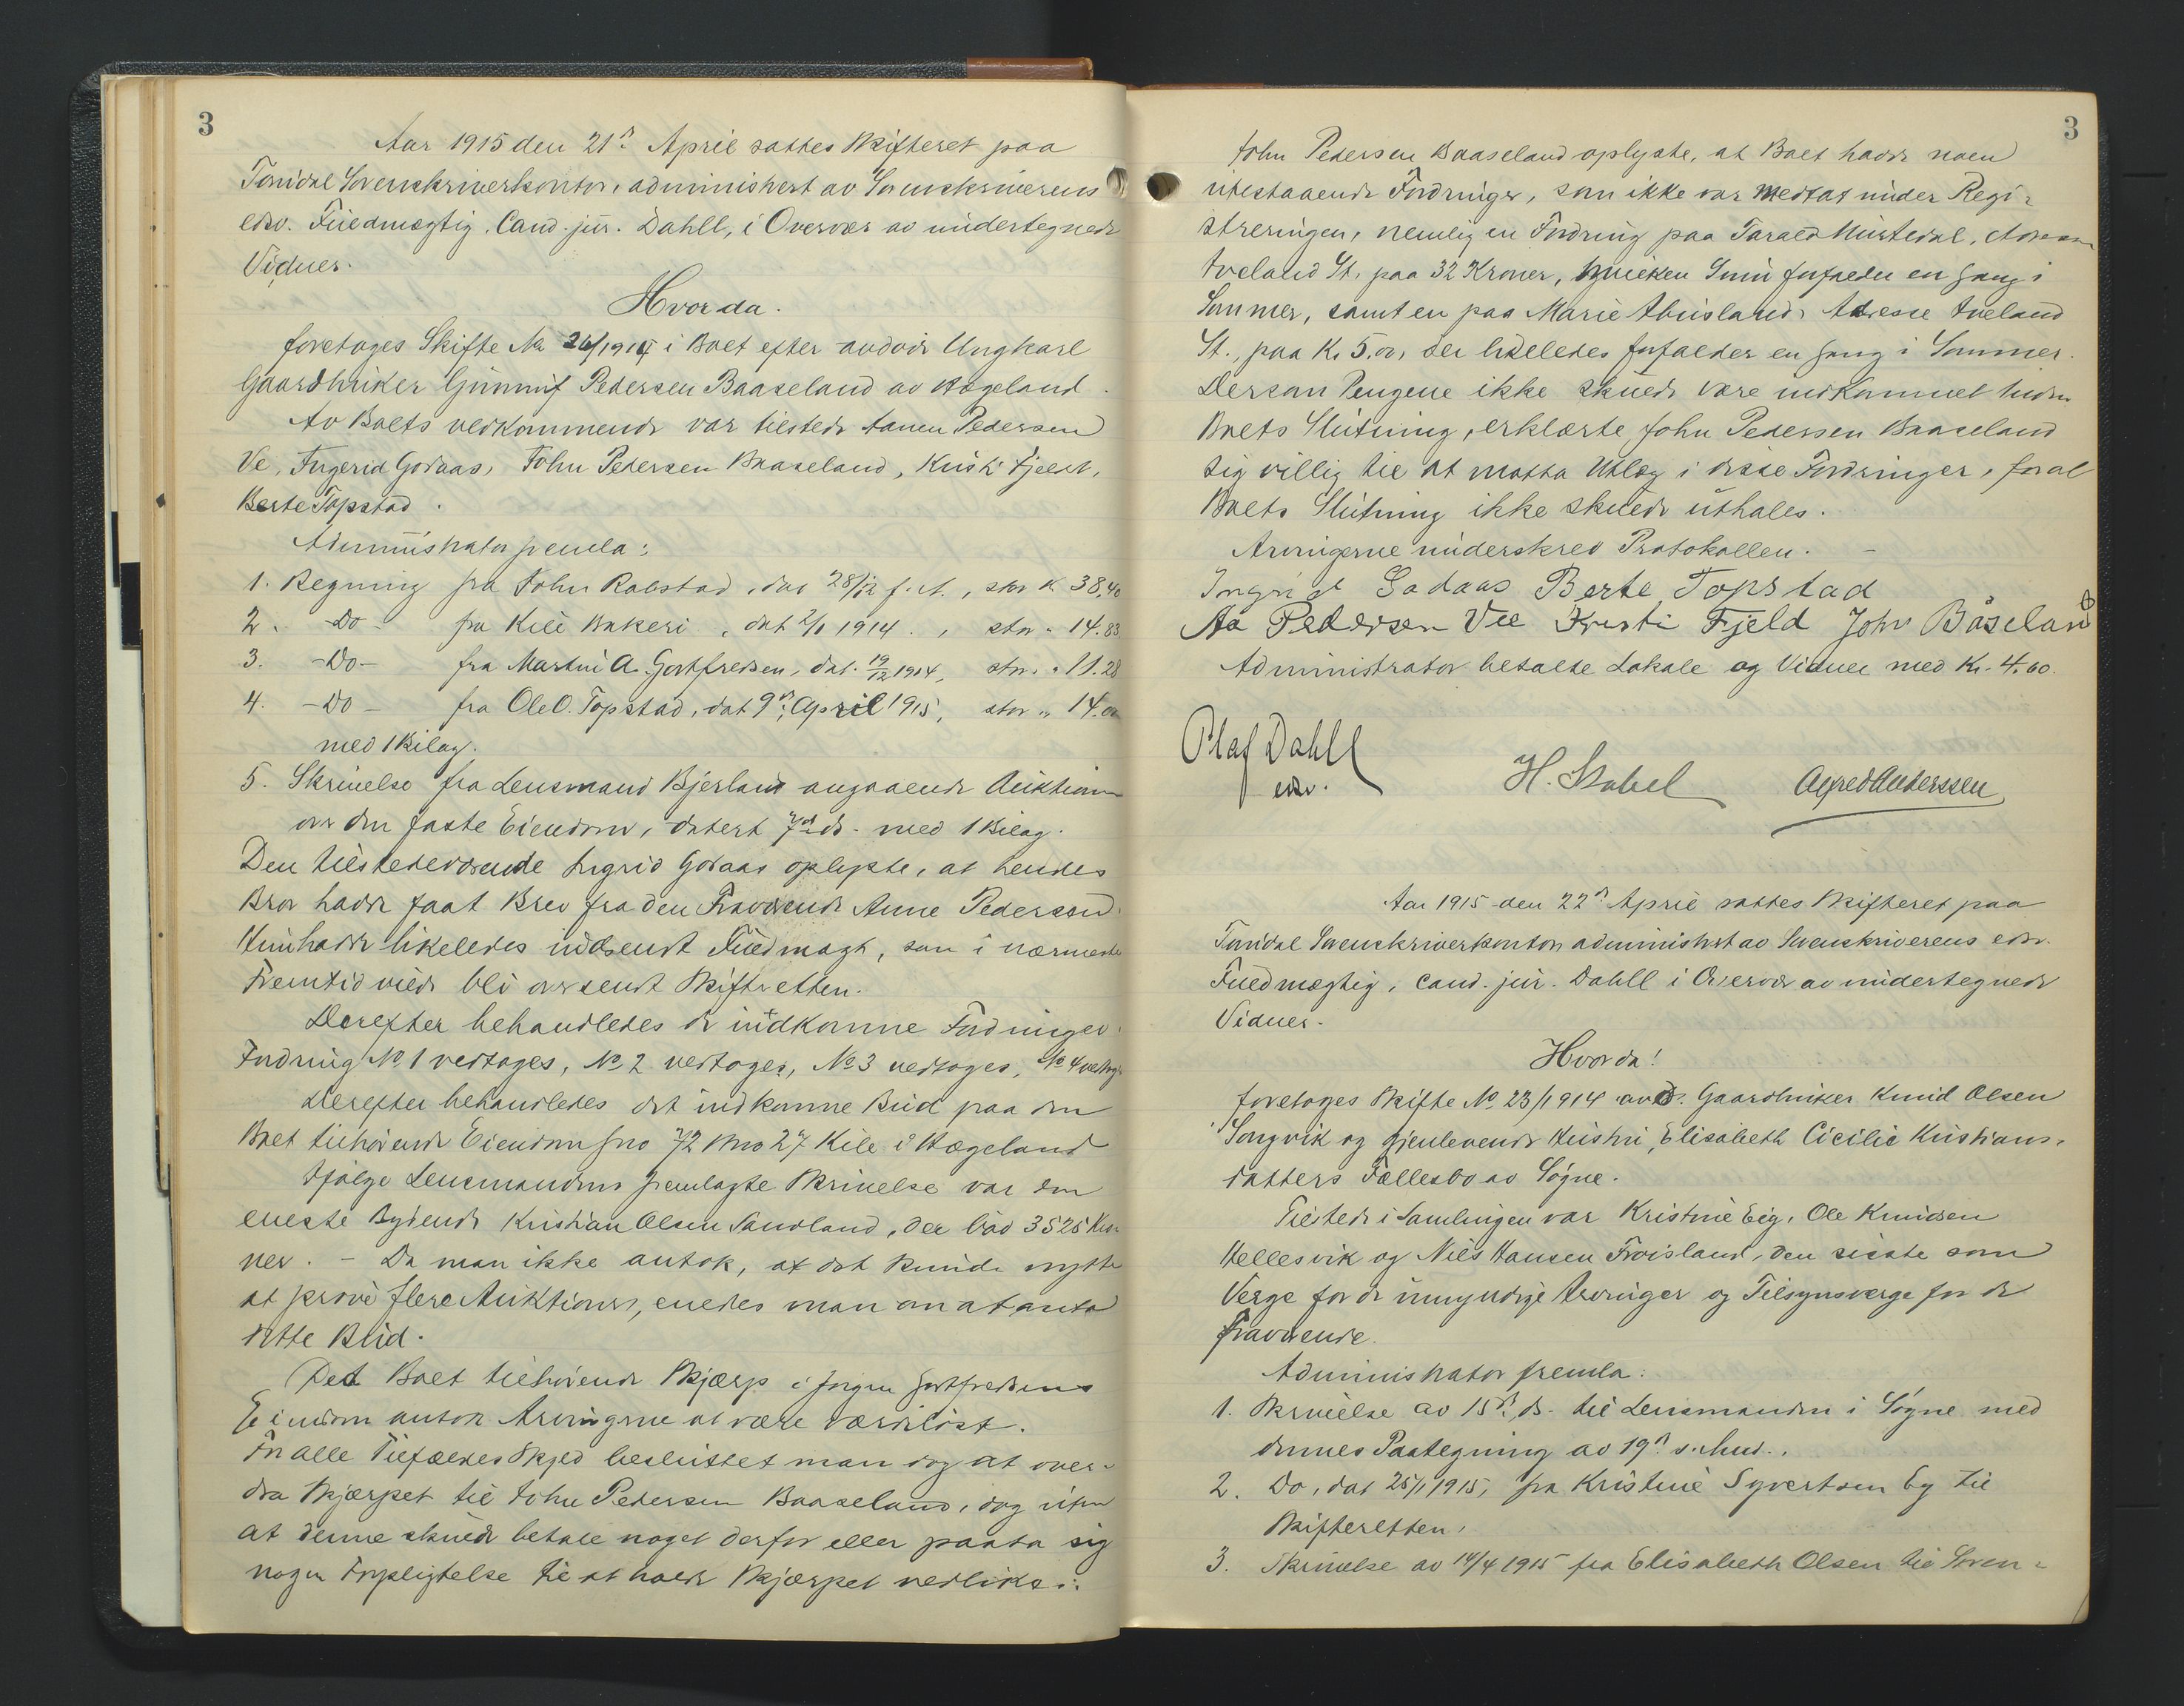 3
Aar 1915 den 21de April sattes Skifteret paa
Toridal Sorenskriverkontor, administrert av Sorenskriverens
edsv. Fuldmægtig, Cand. jur. Dahll, i Overvær av undertegnede
Vidner.
Hvorda.
foretoges Skifte No 26/1914 i Boet efter avdøde Ungkarl
Gaardbruker Gunnuf Pedersen Baaseland av Hægeland.
Av Boets vedkommende var tilstede Aanen Pedersen
Ve, Ingerid Godaas, John Pedersen Baaseland, Kristi Fjeld,
Berte Topstad.
Administrator fremla:
1. Regning fra John Robstad, dat 28/12 f. A., stor K 38.40
2. -Do- fra Kile Bakeri, dat 2/1 1914., stor " 14.83
3. -Do- fra Martin A. Gortfredsen, dat. 19/12 1914, stor. " 11.28
4. -Do- fra Ole O. Topstad, dat 9de April 1915, stor " 14.00
med 1 Bilag.
5. Skrivelse fra Lensmand Bjerland angaaende Auktion
over den faste Eiendom, datert 7de ds. med 1 Bilag.
Den tilstedeværende Ingrid Godaas oplyste, at hendes
Bror hadde faat Brev fra den Fraværende Anne Pederson.
Hun hadde likeledes indsendt Fuldmagt, som i nærmeste
Fremtid vilde bli oversendt Skifteretten.
Derefter behandledes de indkomne Fordringer.
Fordring No 1 vedtoges, No 2 vedtoges, No 3 vedtoges, No 4 vedtoges
Derefter behandledes det indkomne Bud paa den
Boet tilhørende Eiendom Gno 72 Bno 27 Kile i Hægeland
Ifølge Lensmandens fremlagte Skrivelse var den
eneste Bydende Kristian Olsen Sandland, der bød 3525 Kro-
ner. - Da man ikke antok, at det kunde nytte
at prøve flere Auktioner, enedes man om at anta
dette Bud.
Det Boet tilhørende Skjærp i Jørgen Gortfredsens
Eiendom antok Arvingerne at være værdiløst.
For alle Tilfældes Skyld besluttet man dog at over-
dra Skjærpet til John Pedersen Baaseland, dog uten
at denne skulde betale noget derfor eller paata sig
nogen Forpligtelse til at holde Skjærpet vedlike.
3
John Pedersen Baaseland oplyste, at Boet hadde noen
utestaaende Fordringer, som ikke var medtat under Regi-
streringen, nemlig en Fordring paa Tarald Mustedal, Adresse
Iveland St. paa 32 Kroner, hvilken Sum forfalder en Gang i
Sommer, samt en paa Marie Abusland, Adresse Iveland
St., paa Kr. 5.00, der likeledes forfalder en Gang i Sommer.
Dersom Pengene ikke skulde være indkommet inden
Boets Slutning, erklærte John Pedersen Baaseland
sig villig til at motta Utlæg i disse Fordringer, for at
Boets Slutning ikke skulde uthales.
Arvingerne underskrev Protokollen. -
Ingrid Godaas Berte Topstad
Aa Pedersen Vee Kristi Fjeld John Båseland
Administrator betalte Lokale og Vidner med Kr. 4.60.
Olaf Dahll
edsv.
H. Stabel
Alfred Anderssen
Aar 1915 den 22de April sattes Skifteret paa
Toridal Sorenskriverkontor administrert av Sorenskriverens edsv.
Fuldmægtig, cand. jur. Dahll i Overvær av undertegnede
Vidner.
Hvorda!
foretoges Skifte No 23/1914 avd. Gaardbruker Knud Olsen
Songvik og gjenlevende Hustru, Elisabeth Cicilie Kristians-
datters Fællesbo av Søgne.
Tilstede i Samlingen var Kristine Eig, Ole Knudsen
Hellesvik og Nils Hansen Frøisland, den sidste som
Verge for de umyndige Arvinger og Tilsynsverge for de
fraværende.
Administrator fremla:
1. Skrivelse av 15de ds. til Lensmanden i Søgne med
dennes Paategning av 19de s. Md.
2. Do, dat 25/1 1915, fra Kristine Syvertsen Eg til
Skifteretten,
3. Skrivelse av 14/4 1915 fra Elisabeth Olsen til Soren-